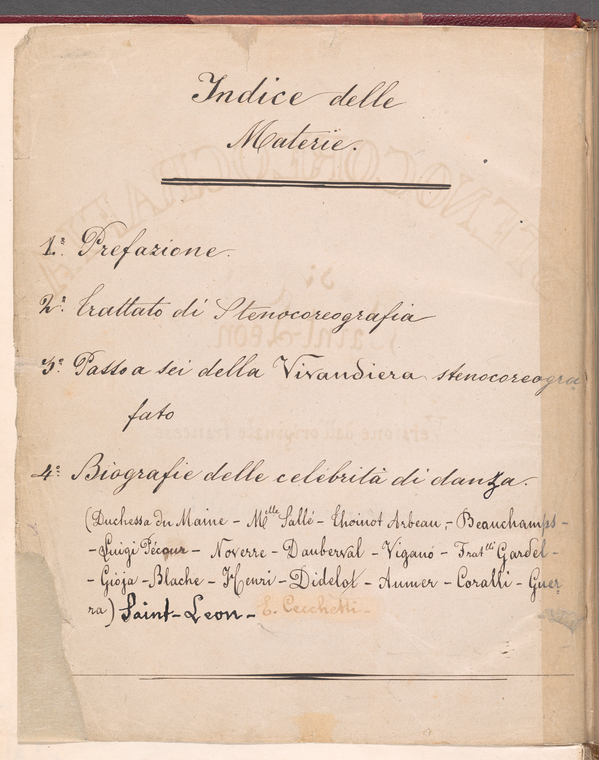 Indice delle
Materie.
1.º Prefazione.
2.º Trattato di Stenocoreografia
3.º Passo a sei della Vivandiera stenocoreogra
fato
4.º Biografie delle celebrità di danza.
(Duchessa du Maine - Melle Sallé - Thoinot Arbeau - Beauchamps -
- Luigi Pécour - Noverre - Dauberval - Viganó - Fratlli Gardel -
- Gioja - Blache - Henri - Didelot - Aumer - Coralli - Guer
ra) Saint-Leon - E. Cecchetti -
STENOCOREOGRAFIA
di
Saint-Leon
Versione dall'originale francese